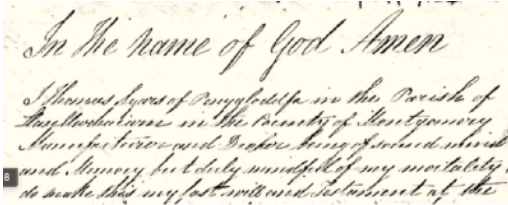 In the name of God Amen
I Thomas of Penygloddfa in the Parish of
in the County of Montgomery
Manufacturer and being of sound mind
and Memory but duly mindful of my mortality
do make this my last will and Testament at the
8